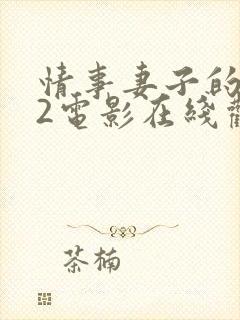 情事妻子的
2電影在綫
茶楠